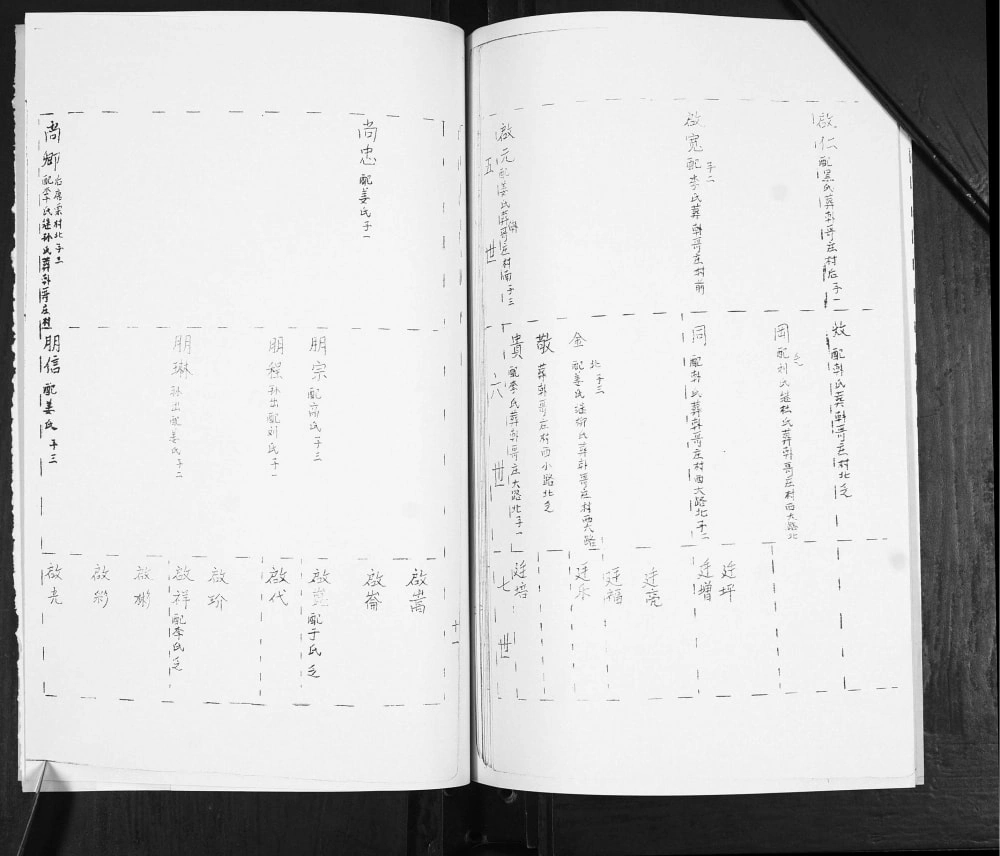 啟仁 配党氏葬郭哥庄村后子一
啟寬 配李氏葬郭哥庄村前
子二
啟元 配姜氏葬郭哥庄村南子三
五世
效 配郭氏葬郭哥庄村北乏
岡 配刘氏继杜氏葬郭哥庄村西大路北
乏
同 配郭氏葬郭哥庄村西大路北子二
金 配姜氏继柳氏葬郭哥庄村西大路
北子三
敬 葬郭哥庄村西小路北乏
貴 配李氏葬郭哥庄大路北子一
六世
廷坪
廷增
廷亮
廷福
廷乐
廷培
七世
十一
尚忠 配姜氏子一
尚卿 配李氏继孙氏葬郭哥庄村
子三
朋宗 配高氏子三
朋程 孙出配刘氏子一
朋琳 孙出配姜氏子二
朋信 配姜氏子三
啟嵩
啟崙
啟堯 配于氏乏
啟代
啟玠
啟祥 配李氏乏
啟彬
啟彩
啟亮